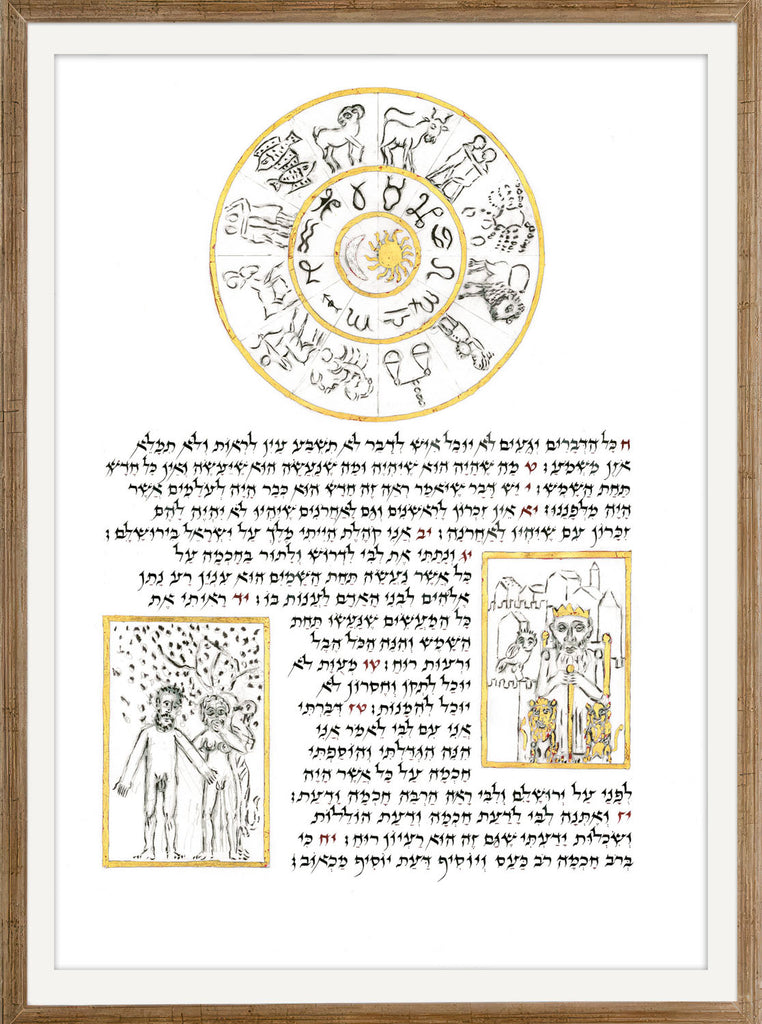 ח כָּל הַדְּבָרִים יְגֵעִים לֹא יוּכַל אִישׁ לְדַבֵּר לֹא תִשְׂבַּע עַיִן לִרְאוֹת וְלֹא תִמָּלֵא
אֹזֶן מִשְּׁמֹעַ: ט מַה שֶּׁהָיָה הוּא שֶׁיִּהְיֶה וּמַה שֶּׁנַּעֲשָׂה הוּא שֶׁיֵּעָשֶׂה וְאֵין כָּל חָדָשׁ
תַּחַת הַשָּׁמֶשׁ: י יֵשׁ דָּבָר שֶׁיֹּאמַר רְאֵה זֶה חָדָשׁ הוּא כְּבָר הָיָה לְעֹלָמִים אֲשֶׁר
הָיָה מִלְּפָנֵנוּ: יא אֵין זִכְרוֹן לָרִאשֹׁנִים וְגַם לָאַחֲרֹנִים שֶׁיִּהְיוּ לֹא יִהְיֶה לָהֶם
זִכָּרוֹן עִם שֶׁיִּהְיוּ לָאַחֲרֹנָה: יב אֲנִי קֹהֶלֶת הָיִיתִי מֶלֶךְ עַל יִשְׂרָאֵל בִּירוּשָׁלִָם:
יג וְנָתַתִּי אֶת לִבִּי לִדְרוֹשׁ וְלָתוּר בַּחָכְמָה עַל
כָּל אֲשֶׁר נַעֲשָׂה תַּחַת הַשָּׁמָיִם הוּא עִנְיַן רָע נָתַן
אֱלֹהִים לִבְנֵי הָאָדָם לַעֲנוֹת בּוֹ: יד רָאִיתִי אֶת
כָּל הַמַּעֲשִׂים שֶׁנַּעֲשׂוּ תַּחַת
הַשָּׁמֶשׁ וְהִנֵּה הַכֹּל הֶבֶל
וּרְעוּת רוּחַ: טו מְעֻוָּת לֹא
יוּכַל לִתְקֹן וְחֶסְרוֹן לֹא
יוּכַל לְהִמָּנוֹת: טז דִּבַּרְתִּי
אֲנִי עִם לִבִּי לֵאמֹר אֲנִי
הִנֵּה הִגְדַּלְתִּי וְהוֹסַפְתִּי
חָכְמָה עַל כָּל אֲשֶׁר הָיָה
לְפָנַי עַל יְרוּשָׁלִָם וְלִבִּי רָאָה הַרְבֵּה חָכְמָה וָדָעַת:
יז וָאֶתְּנָה לִבִּי לָדַעַת חָכְמָה וְדַעַת הוֹלֵלוֹת
וְשִׂכְלוּת יָדַעְתִּי שֶׁגַּם זֶה הוּא רַעְיוֹן רוּחַ: יח כִּי
בְּרֹב חָכְמָה רָב כָּעַס וְיוֹסִיף דַּעַת יוֹסִיף מַכְאוֹב: